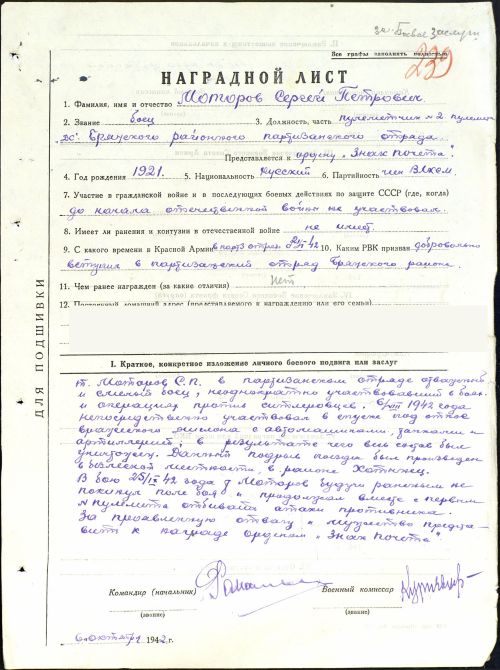 за Боевые заслуги
Все графы заполнять полностью
239
НАГРАДНОЙ ЛИСТ
1. Фамилия, имя и отчество Моторов Сергей Петрович
2. Звание боец 3. Должность, часть пулеметчик N 2 пулемета
"ДС" Брянского районного партизанского отряда.
Представляется к ордену "Знак почета".
4. Год рождения 1921. 5. Национальность Русский 6. Партийность член ВЛКСМ.
7. Участие в гражданской войне и в последующих боевых действиях по защите СССР (где, когда)
до начала отечественной войны не участвовал.
8. Имеет ли ранения и контузии в отечественной войне не имеет.
9. С какого времени в Красной Армии в парт. отряде 42 10. Каким РВК призван добровольно
вступил в партизанский отряд Брянского района.
11. Чем ранее награжден (за какие отличия) нет
12. Постоянный домашний адрес (представляемого к награждению или его семьи)
ДЛЯ ПОДШИВКИ
I. Краткое, конкретное изложение личного боевого подвига или заслуг
т. Моторов С.П. в партизанском отряде отважный
и смелый боец, неоднократно участвовавший в боях
и операциях против гитлеровцев. 6/VIII 1942 года
непосредственно участвовал в спуске под откос
вражеского эшелона с автомашинами, танками и
артиллерией; в результате чего весь состав был
уничтожен. Данный подрыв поезда был произведен
в болотной местности, в районе
В бою 25/IX 42 года т Моторов будучи раненым не
покинул поле боя и продолжал вместе с первым
N пулемета отбивать атаки противника.
За проявленную отвагу и мужество предста-
вить к награде орденом "Знак почета"
Командир (начальник) Военный комиссар
(звание) (звание)
6 октября 1942 г.